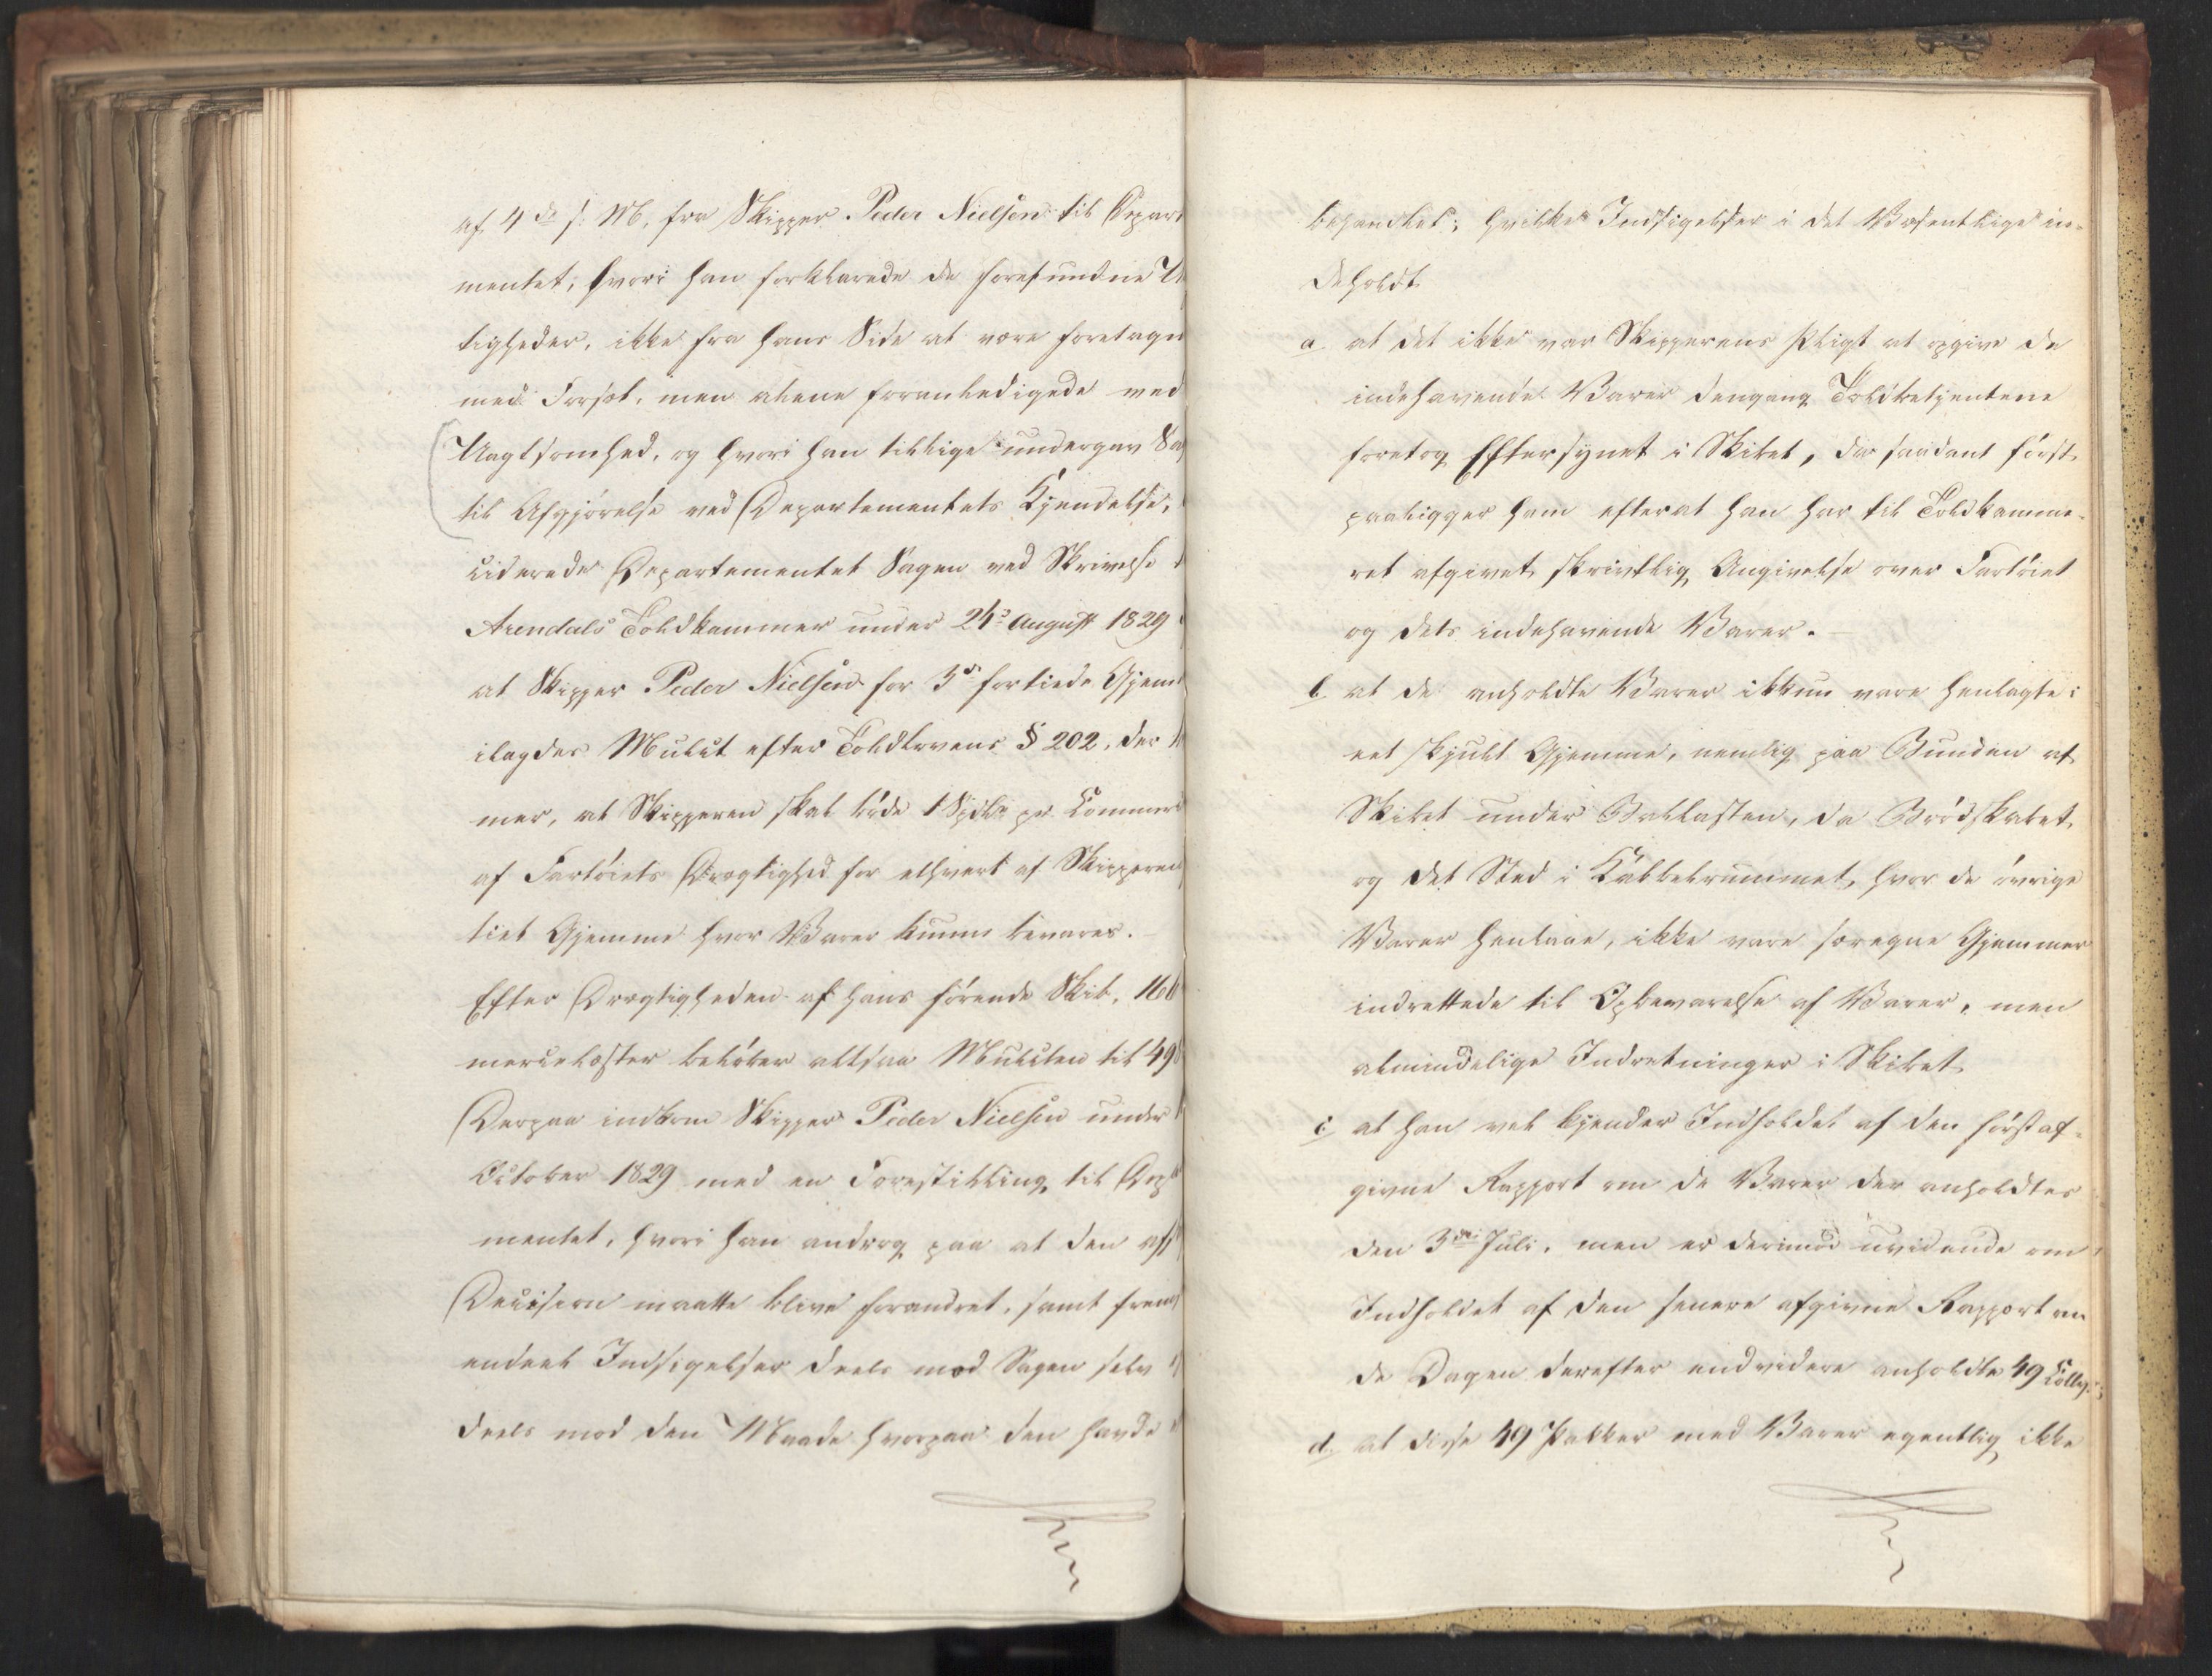 af 4de s: M. fra Skipper Peder Nielsen til Depart
mentet, hvori han forklarede de forefundne U
tigheder, ikke fra hans Side at være foretagn
med Forsæt, men alene foranledigede ved
Uagtsomhed, og hvori han tillige undergav Sa
til Afgjørelse ved Departementets Kjendelse,
ciderede Departementet Sagen ved Skrivelse
Arendals Toldkammer under 24de August 1829
at Skipper Peder Nielsen for 3de fortiede Gjem
ilægdes Mulct efter Toldlovens § 202, der
mer, at Skipperen skal bøde 1 Spdlr pr. Commerc
af Fartøiets Drægtighed for ethvert af Skipperen
tiet Gjemme hvor Varer kunne bevares.
Efter Drægtigheden af hans førende Skib, 16
mercelæster beløber altsaa Mulcten til 49
Derpaa indkom Skipper Peder Nielsen under
October 1829 med en Forestilling til Dep
mentet, hvori han androg paa at den af
Decision maatte blive forandret, samt frem
endeel Indsigelser deels mod Sagen selv
deels mod den Maade hvorpaa den havde
behandlet; hvilke Indsigelser i det Væsentlige in-
deholdt
a. at det ikke var Skipperens Pligt at opgive de
indehavende Varer dengang Toldbetjentene
foretog Eftersynet i Skibet, da saadant først
paaligger ham efterat han har til Toldkamme-
ret afgivet skriftlig Angivelse over Fartøiet
og dets indehavende Varer.
b. at de anholdte Varer ikkun vare henlagte i
eet skjult Gjemme, nemlig paa Bunden af
Skibet under Ballasten, da Brødskabet,
og det Sted i Kabbelrummet, hvor de øvrige
Varer henlaae, ikke vare særegne Gjemmer
indrettede til Opbevarelse af Varer, men
almindelige Indretninger i Skibet.
c. at han vel kjender Indholdet af den først af-
givne Rapport om de Varer der anholdtes
den 3die Juli, men er derimod uvidende om
Indholdet af den senere afgivne Rapport om
de Dagen derefter endvidere anholdte 49 Colly;
d. at disse 49 Pakker med Varer egentlig ikke